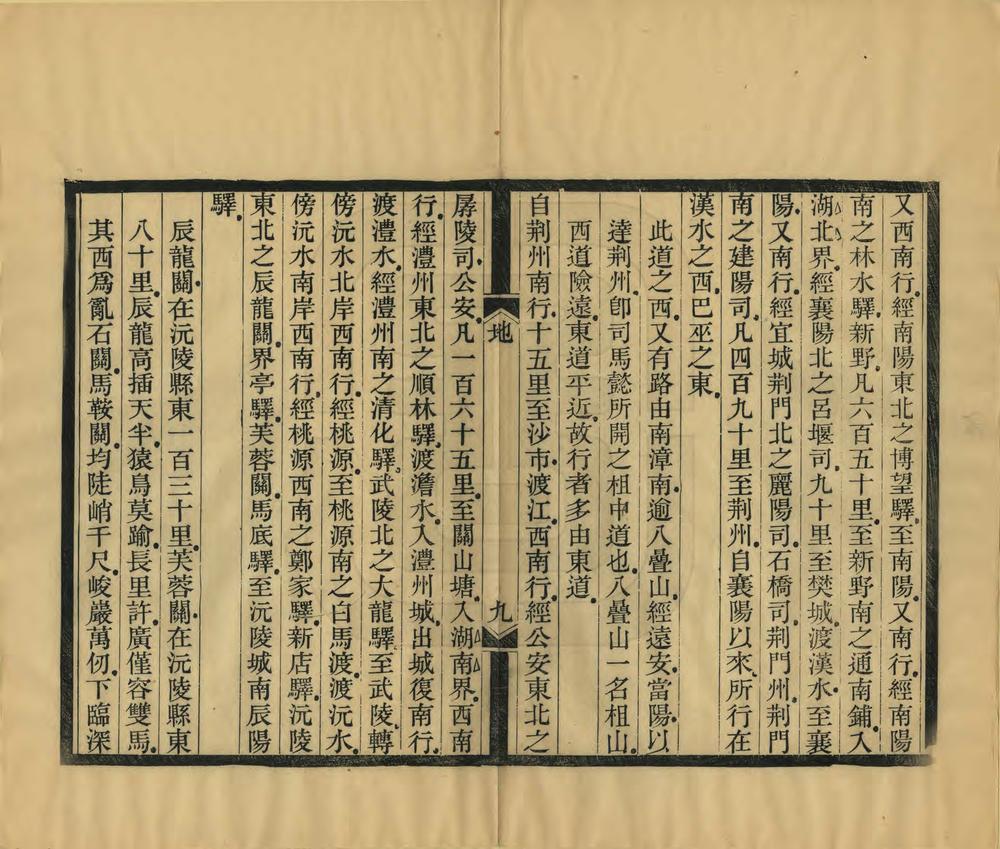 又西南行。經南陽東北之博望驛。至南陽。又南行。經南陽
南之林水驛。新野。凡六百五十里。至新野南之通南鋪。入
湖北界。經襄陽北之呂堰司。九十里至樊城。渡漢水。至襄
陽。又南行。經宜城荆門北之麗陽司。石橋司。荆門州。荆門
南之建陽司。凡四百九十里至荆州。自襄陽以來。所行在
漢水之西。巴巫之東。
此道之西。又有路由南漳南。逾八疊山。經遠安。當陽。以
達荆州。卽司馬懿所開之柤中道也。八疊山一名柤山。
西道險遠。東道平近。故行者多由東道。
自荆州南行。十五里至沙市。渡江。西南行。經公安東北之
地
九
孱陵司。公安。凡一百六十五里。至關山塘。入湖南界。西南
行。經澧州東北之順林驛。渡澹水。入澧州城。出城復南行。
渡澧水。經澧州南之清化驛。武陵北之大龍驛。至武陵。轉
傍沅水北岸西南行。經桃源。至桃源南之白馬渡。渡沅水。
傍沅水南岸西南行。經桃源西南之鄭家驛。新店驛。沅陵
東北之辰龍關。界亭驛。芙蓉關。馬底驛。至沅陵城南辰陽
驛。
辰龍關。在沅陵縣東一百三十里。芙蓉關。在沅陵縣東
八十里。辰龍高插天半。猿鳥莫踰。長里許。廣僅容雙馬。
其西爲亂石關。馬鞍關。均陡峭千尺。峻巖萬仞。下臨深